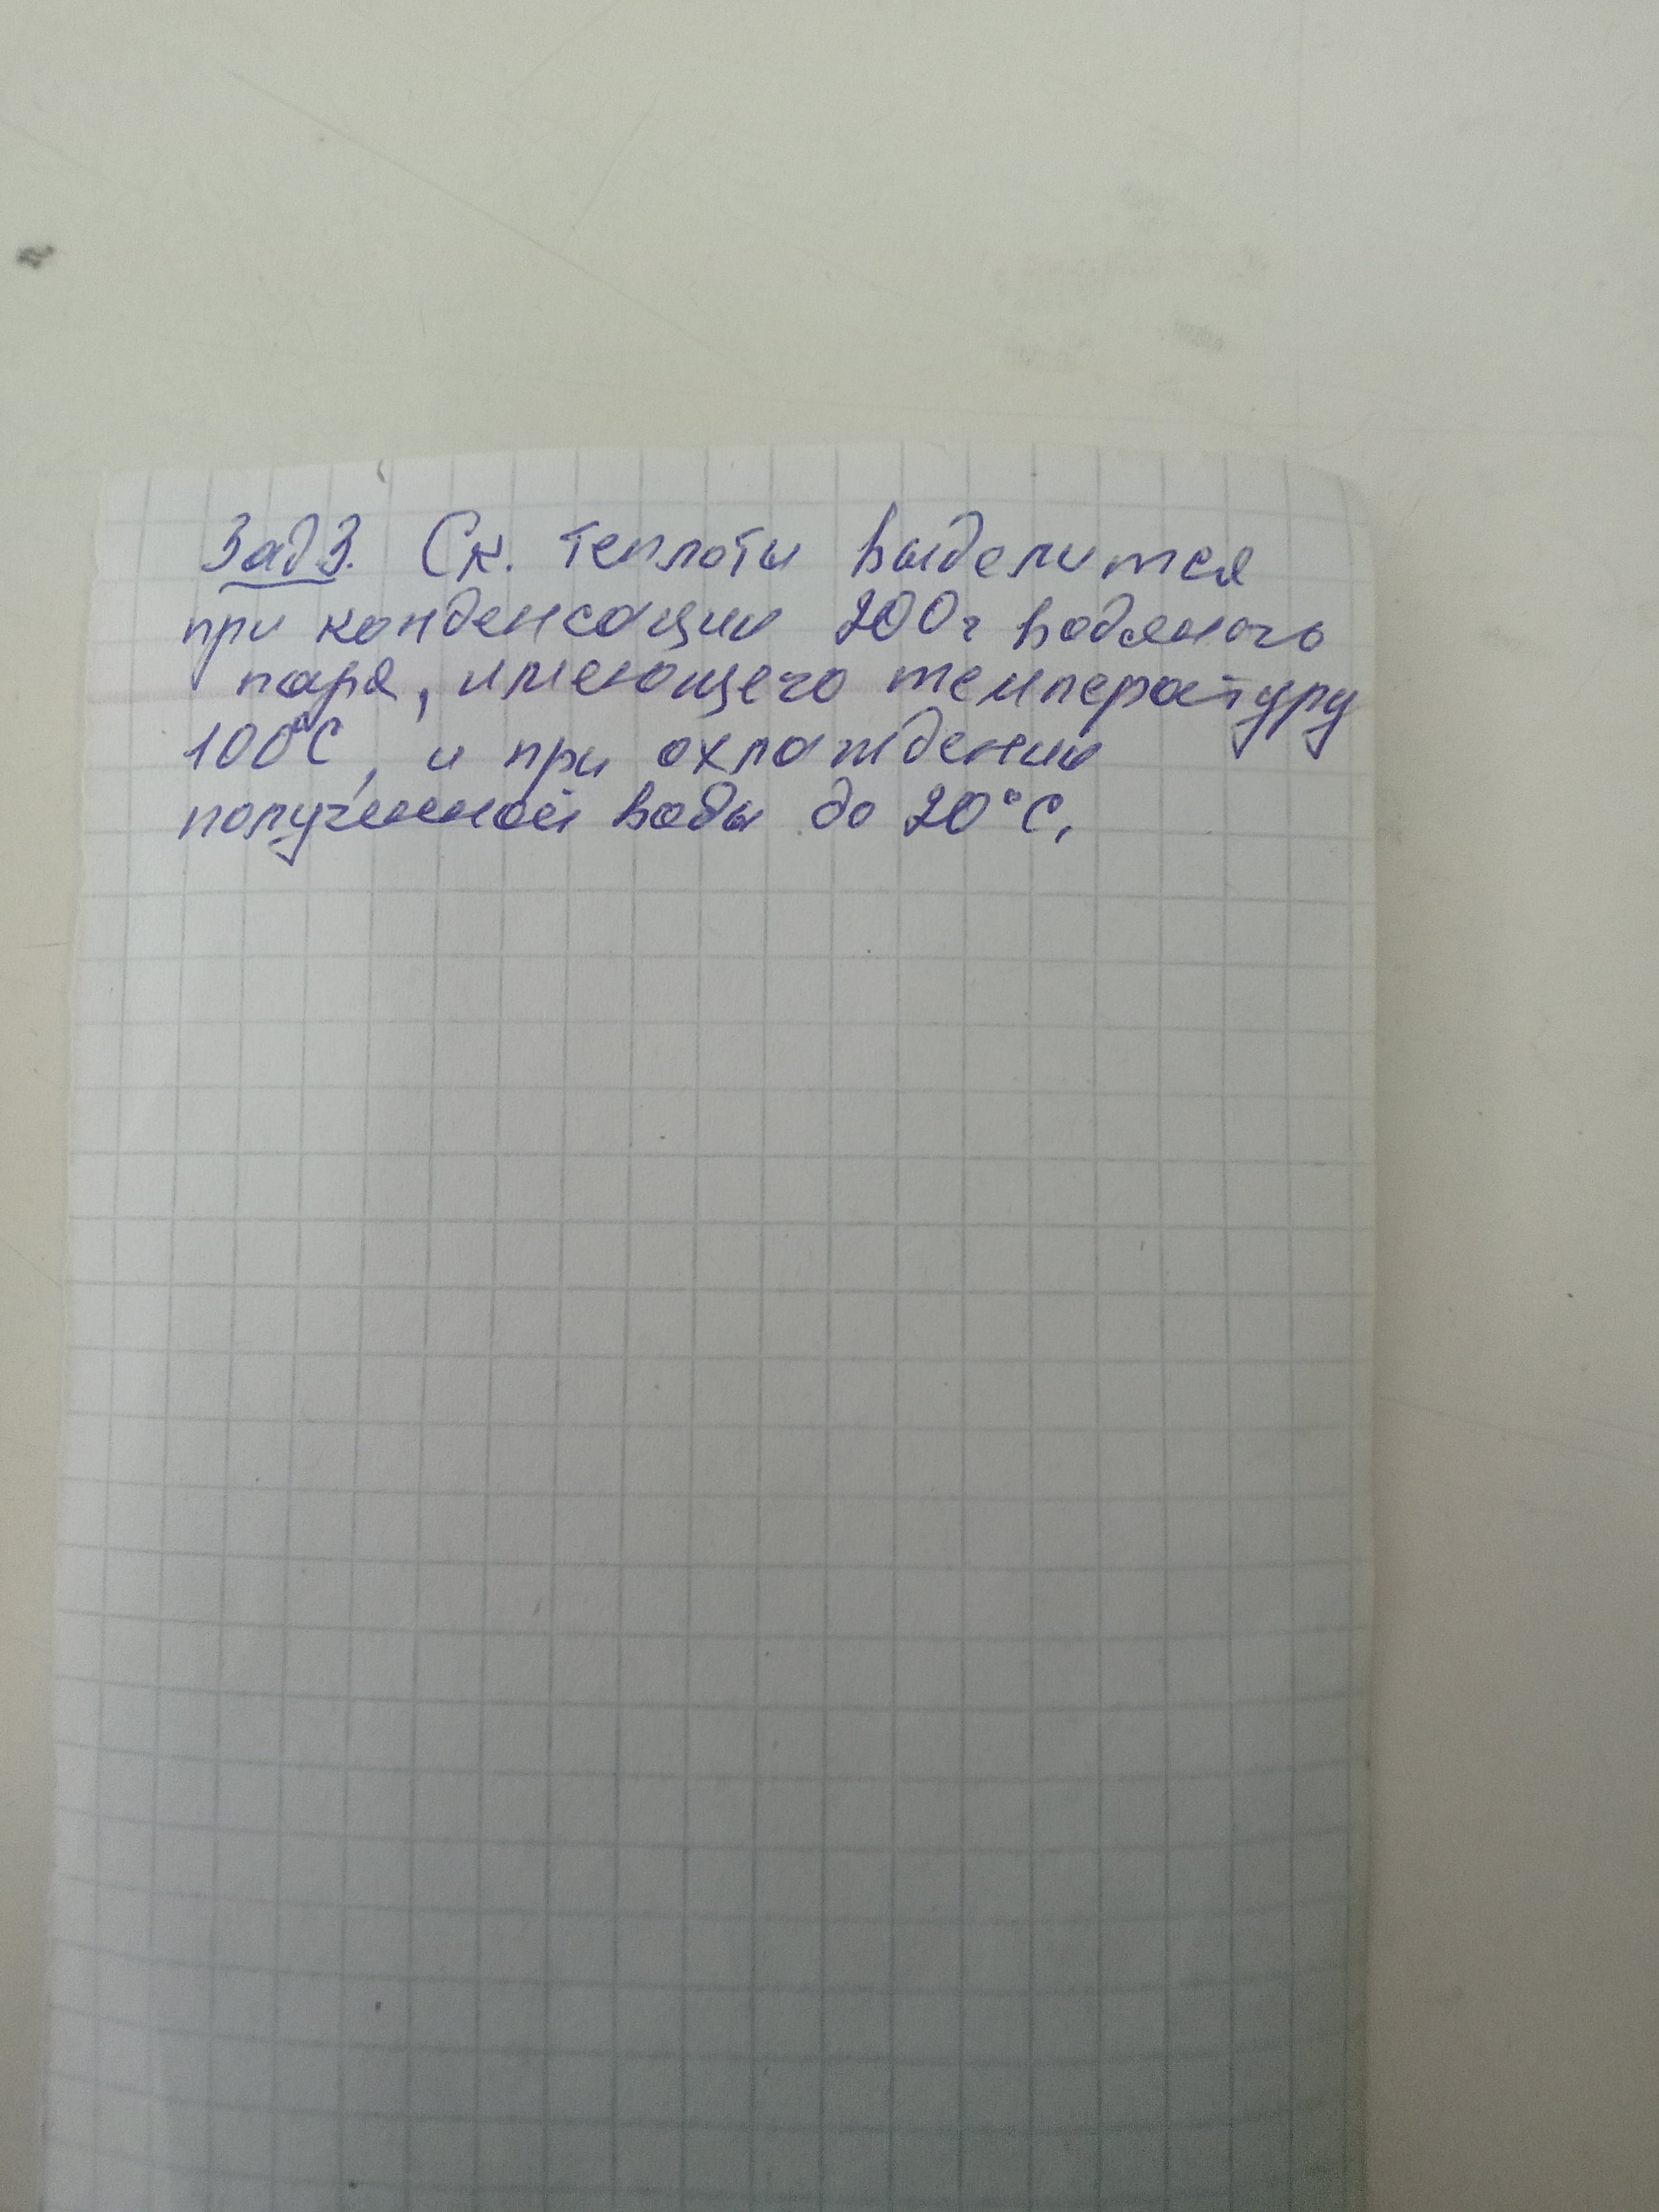 Зад 3. Ск. теплоты выделится
при конденсации 200 г водяного
пара, имеющего температуру
100°С, и при охлаждении
полученной воды до 20°С.